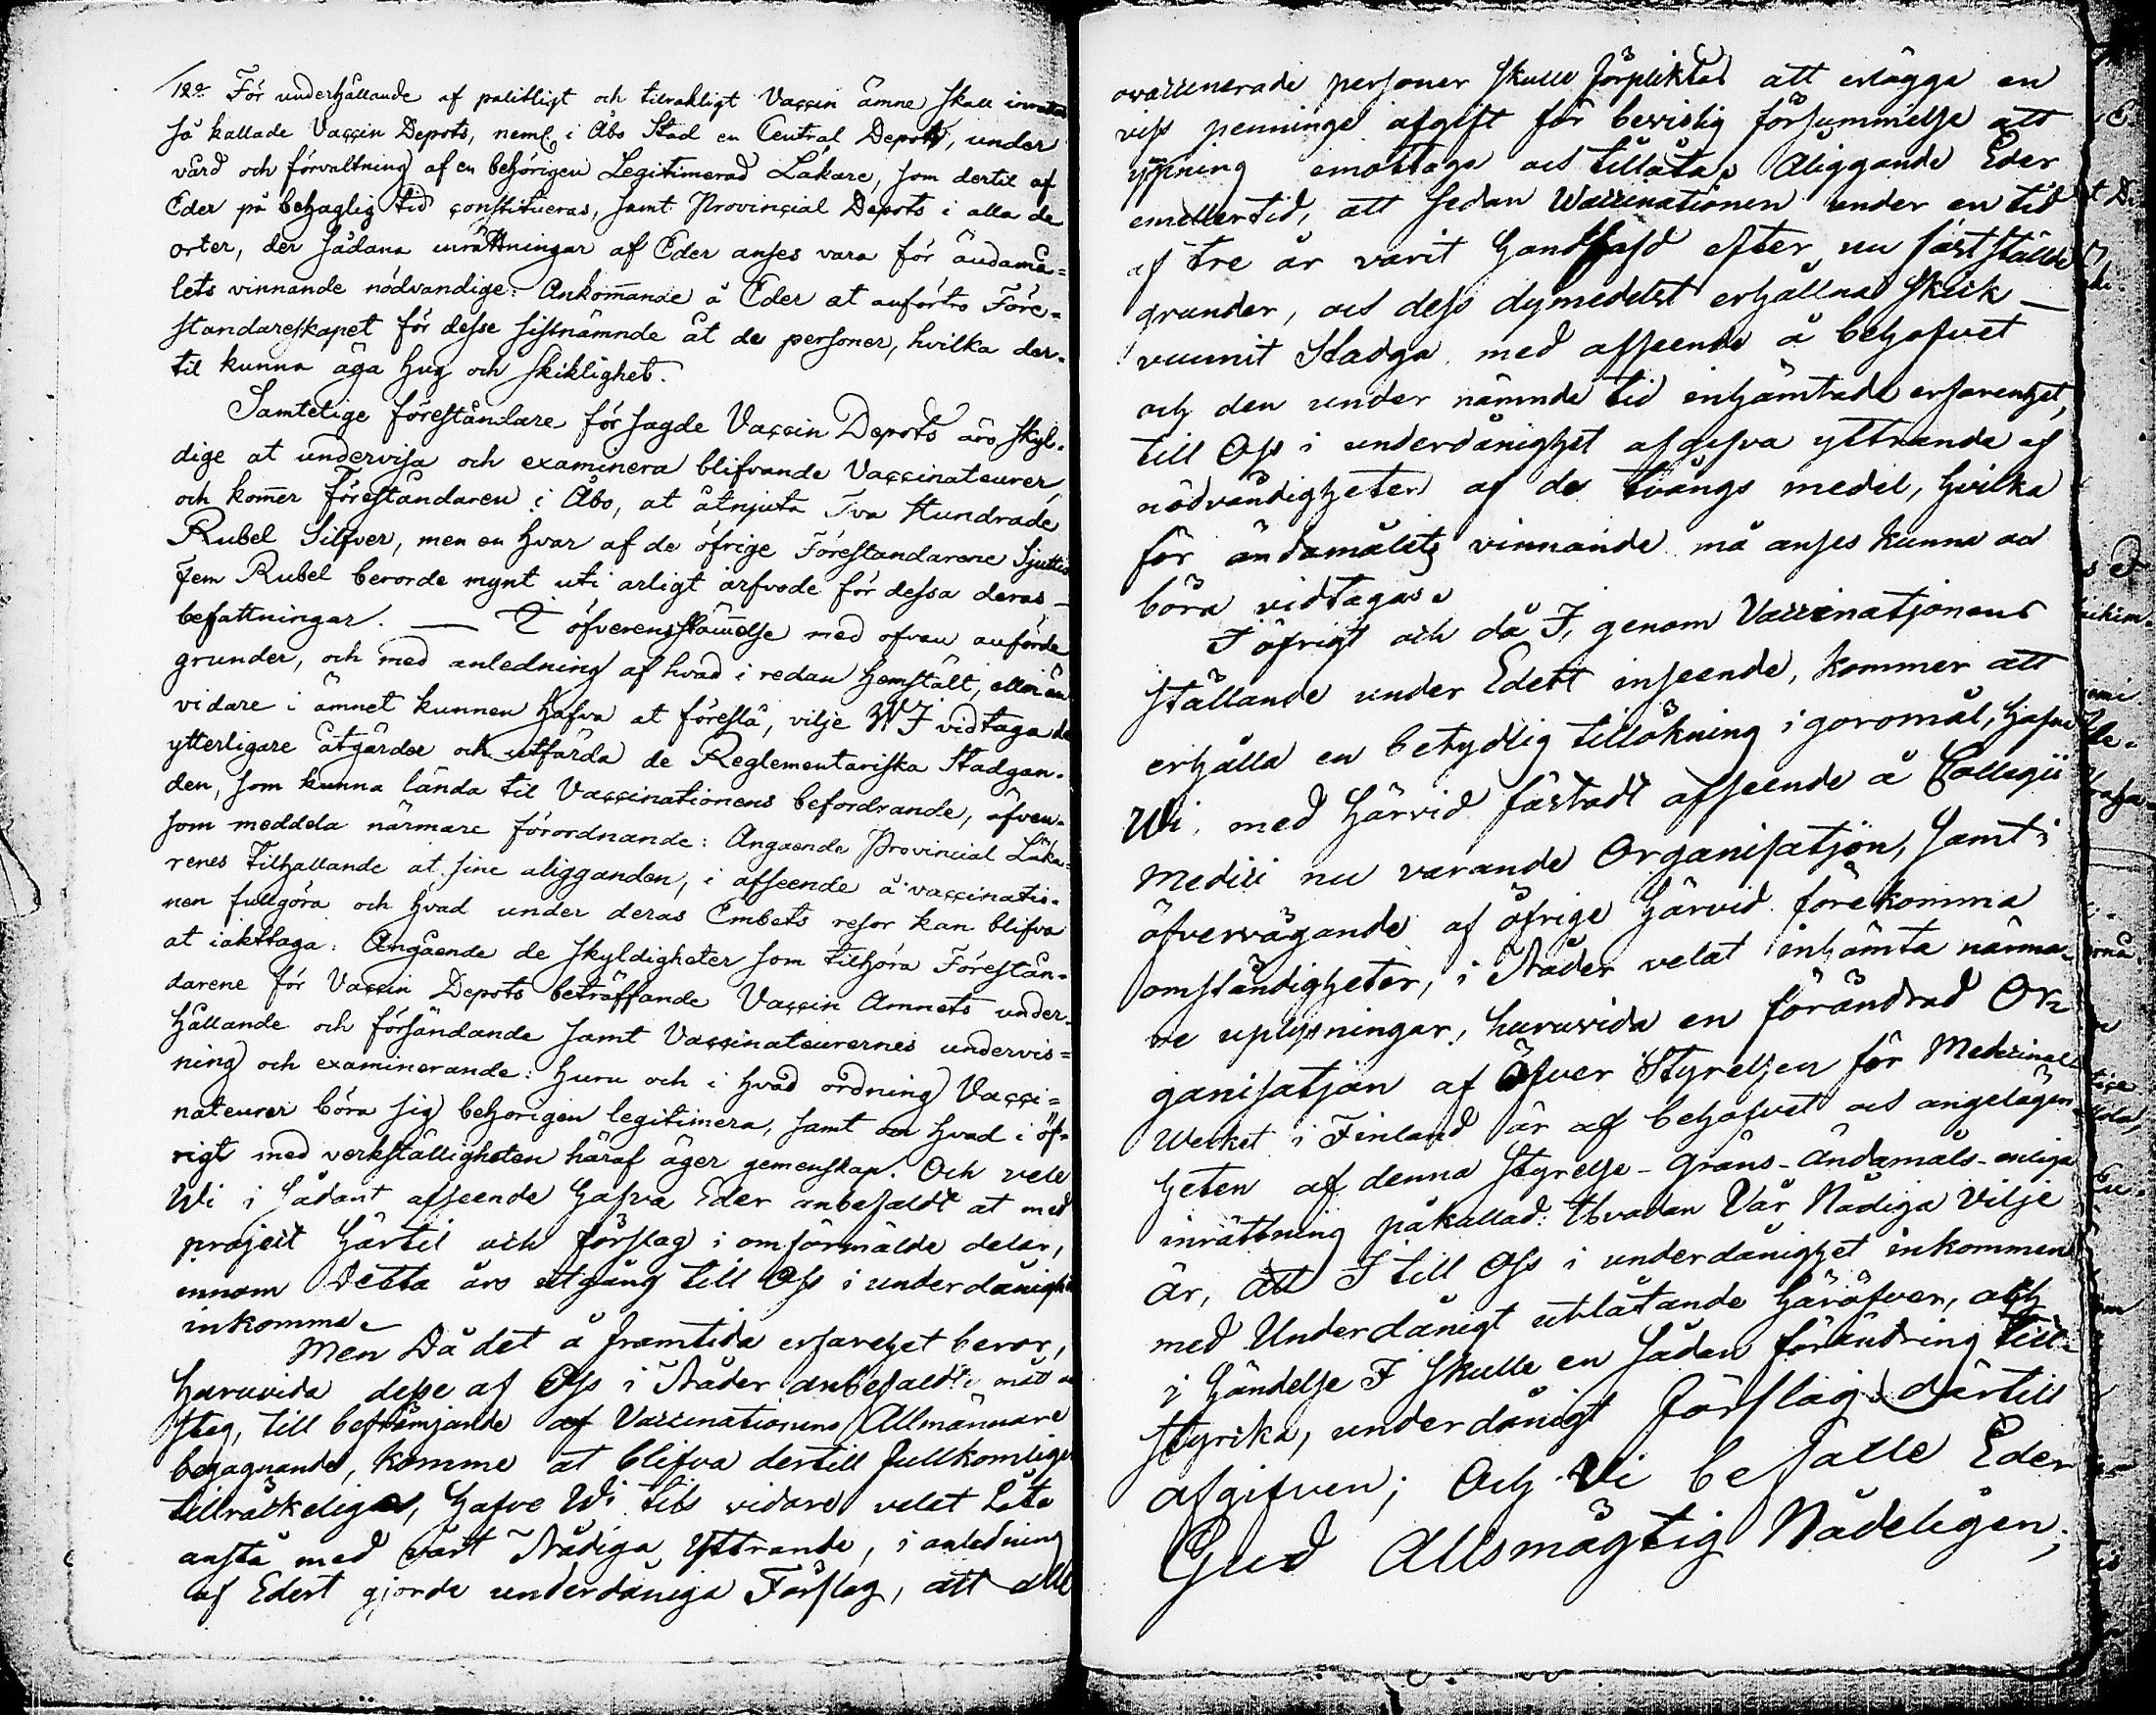 12o För underhållande af palitligt och tilräkligt Vaccin ämne skall inrättas
så kallade Vaccin Depots, neml. i Åbo Stad en Central Depots, under
vård och förvaltning af en behörigen Legitimerad Läkare, som dertil af
Eder på behaglig tid constitueras, samt Provincial Depots i alla de
orter, der sådana inrättningar af Eder anses vara för ändamå=
lets vinnande nödvandige: Ankom̄ande å Eder at anförtro Före=
standareskapet för desse sistnämnde åt de personer, hvilka der=
til kunna äga hug och skiklighet.
Samtelige föreståndare för sagde Vaccin Depots äro skyl=
dige at undervisa och examinera blifvande Vaccinateurer,
och kom̄er föreståndaren i Åbo, at åtnjuta Tva Hundrade
Rubel Silfver, men en hvar af de öfrige Föreståndarene Sjuttio
fem Rubel berorde mynt uti arligt arfvode för dessa deras
befattningar. — I öfverensstäm̄else med ofvan anförde
grunder, och med anledning af hvad i redan hemstält, eller än
vidare i ämnet kunnen hafva at föreslå, vilje WI vidtaga de
ytterligare åtgärder och utfärda de Reglementariska Stadgan=
den, som kunna lända til Vaccinationens befordrande, äfven=
som meddela närmare förordnande: Angaende Provincial Läka=
renes Tilhallande at sine aligganden, i afseende å vaccinatio=
nen fullgöra och hvad under deras Embets resor kan blifva
at iakttaga: Angående de skyldigheter som tilhöra Förestån=
darene för Vaccin Depots beträffande Vaccin Amnets under=
hållande och försändande samt Vaccinateurernes undervis=
ning och examinerande: huru och i hvad ordning Vacci=
nateurer böra sig behörigen legitimera, samt hvad i öf=
rigt med verkställigheten häraf äger gemenskap. Och vele
Wi i sådant afseende hafva Eder anbefaldt at med
project härtil och förslag i omförmälde delar,
innom Detta års utgång till Oss i underdånighet
inkomma.
Men Då det å framtida erfarehet beror,
huruvida desse af Oss i Nåder anbefaldte mått
steg, till befrämjande af Vaccinationens Allmännare
begagnande, komme at blifva dertill fullkomligen
tillräckelige, hafve Wi tils vidare velat Låta
anstå med vårt Nådiga Yttrande, i anledning
af Edert gjorde underdåniga Förslag, att alle
ovaccinerade personer skulle förpliktas att erlägga en
viss penninge afgift för bevislig försummelse att
ympning emottaga och tillåta. Åliggande Eder
emellertid, att sedan Waccinationen under en tid
af tre år varit handhafd efter nu fastställde
grunder, och dess dymedelst erhållna skick
vunnit Stadga, med afseende å behofvet
och den under nämnde tid inhämtade erfarenhet,
till Oss i underdånighet afgifva yttrande af
nödvändigheten af de tvångs medel, hvilka
för ändamålets vinnande må anses kunna och
böra vidtagas.
I öfrigt och då I, genom Vaccinationens
ställande under Edert inseende, kommer att
erhålla en betydlig tillökning i goromål, hafve
Wi, med härvid fästadt afseende å Collegii
Medici nu varande Organisation, samt i
öfvervägande af öfrige härvid förekomma
omständigheter, i Nåder velat inhämta närma=
re uplysningar, huruvida en förändrad Or=
ganisation af Öfver Styrelsen för Medicinal
Werket i Finland är af behofvet och angelägen=
heten af denna Styrelse-Grens-Ändamåls-enliga
inrättning påkallad: Hvadan Vår Nådiga Vilje
är, att I till Oss i underdånighet inkommen
med Underdånigt utlåtande häröfver, och
i händelse I skulle en sådan förändring till=
styrka, underdånigt förslag därtill
afgifven; Och Vi befalle Eder
Gud Allsmägtig Nådeligen;